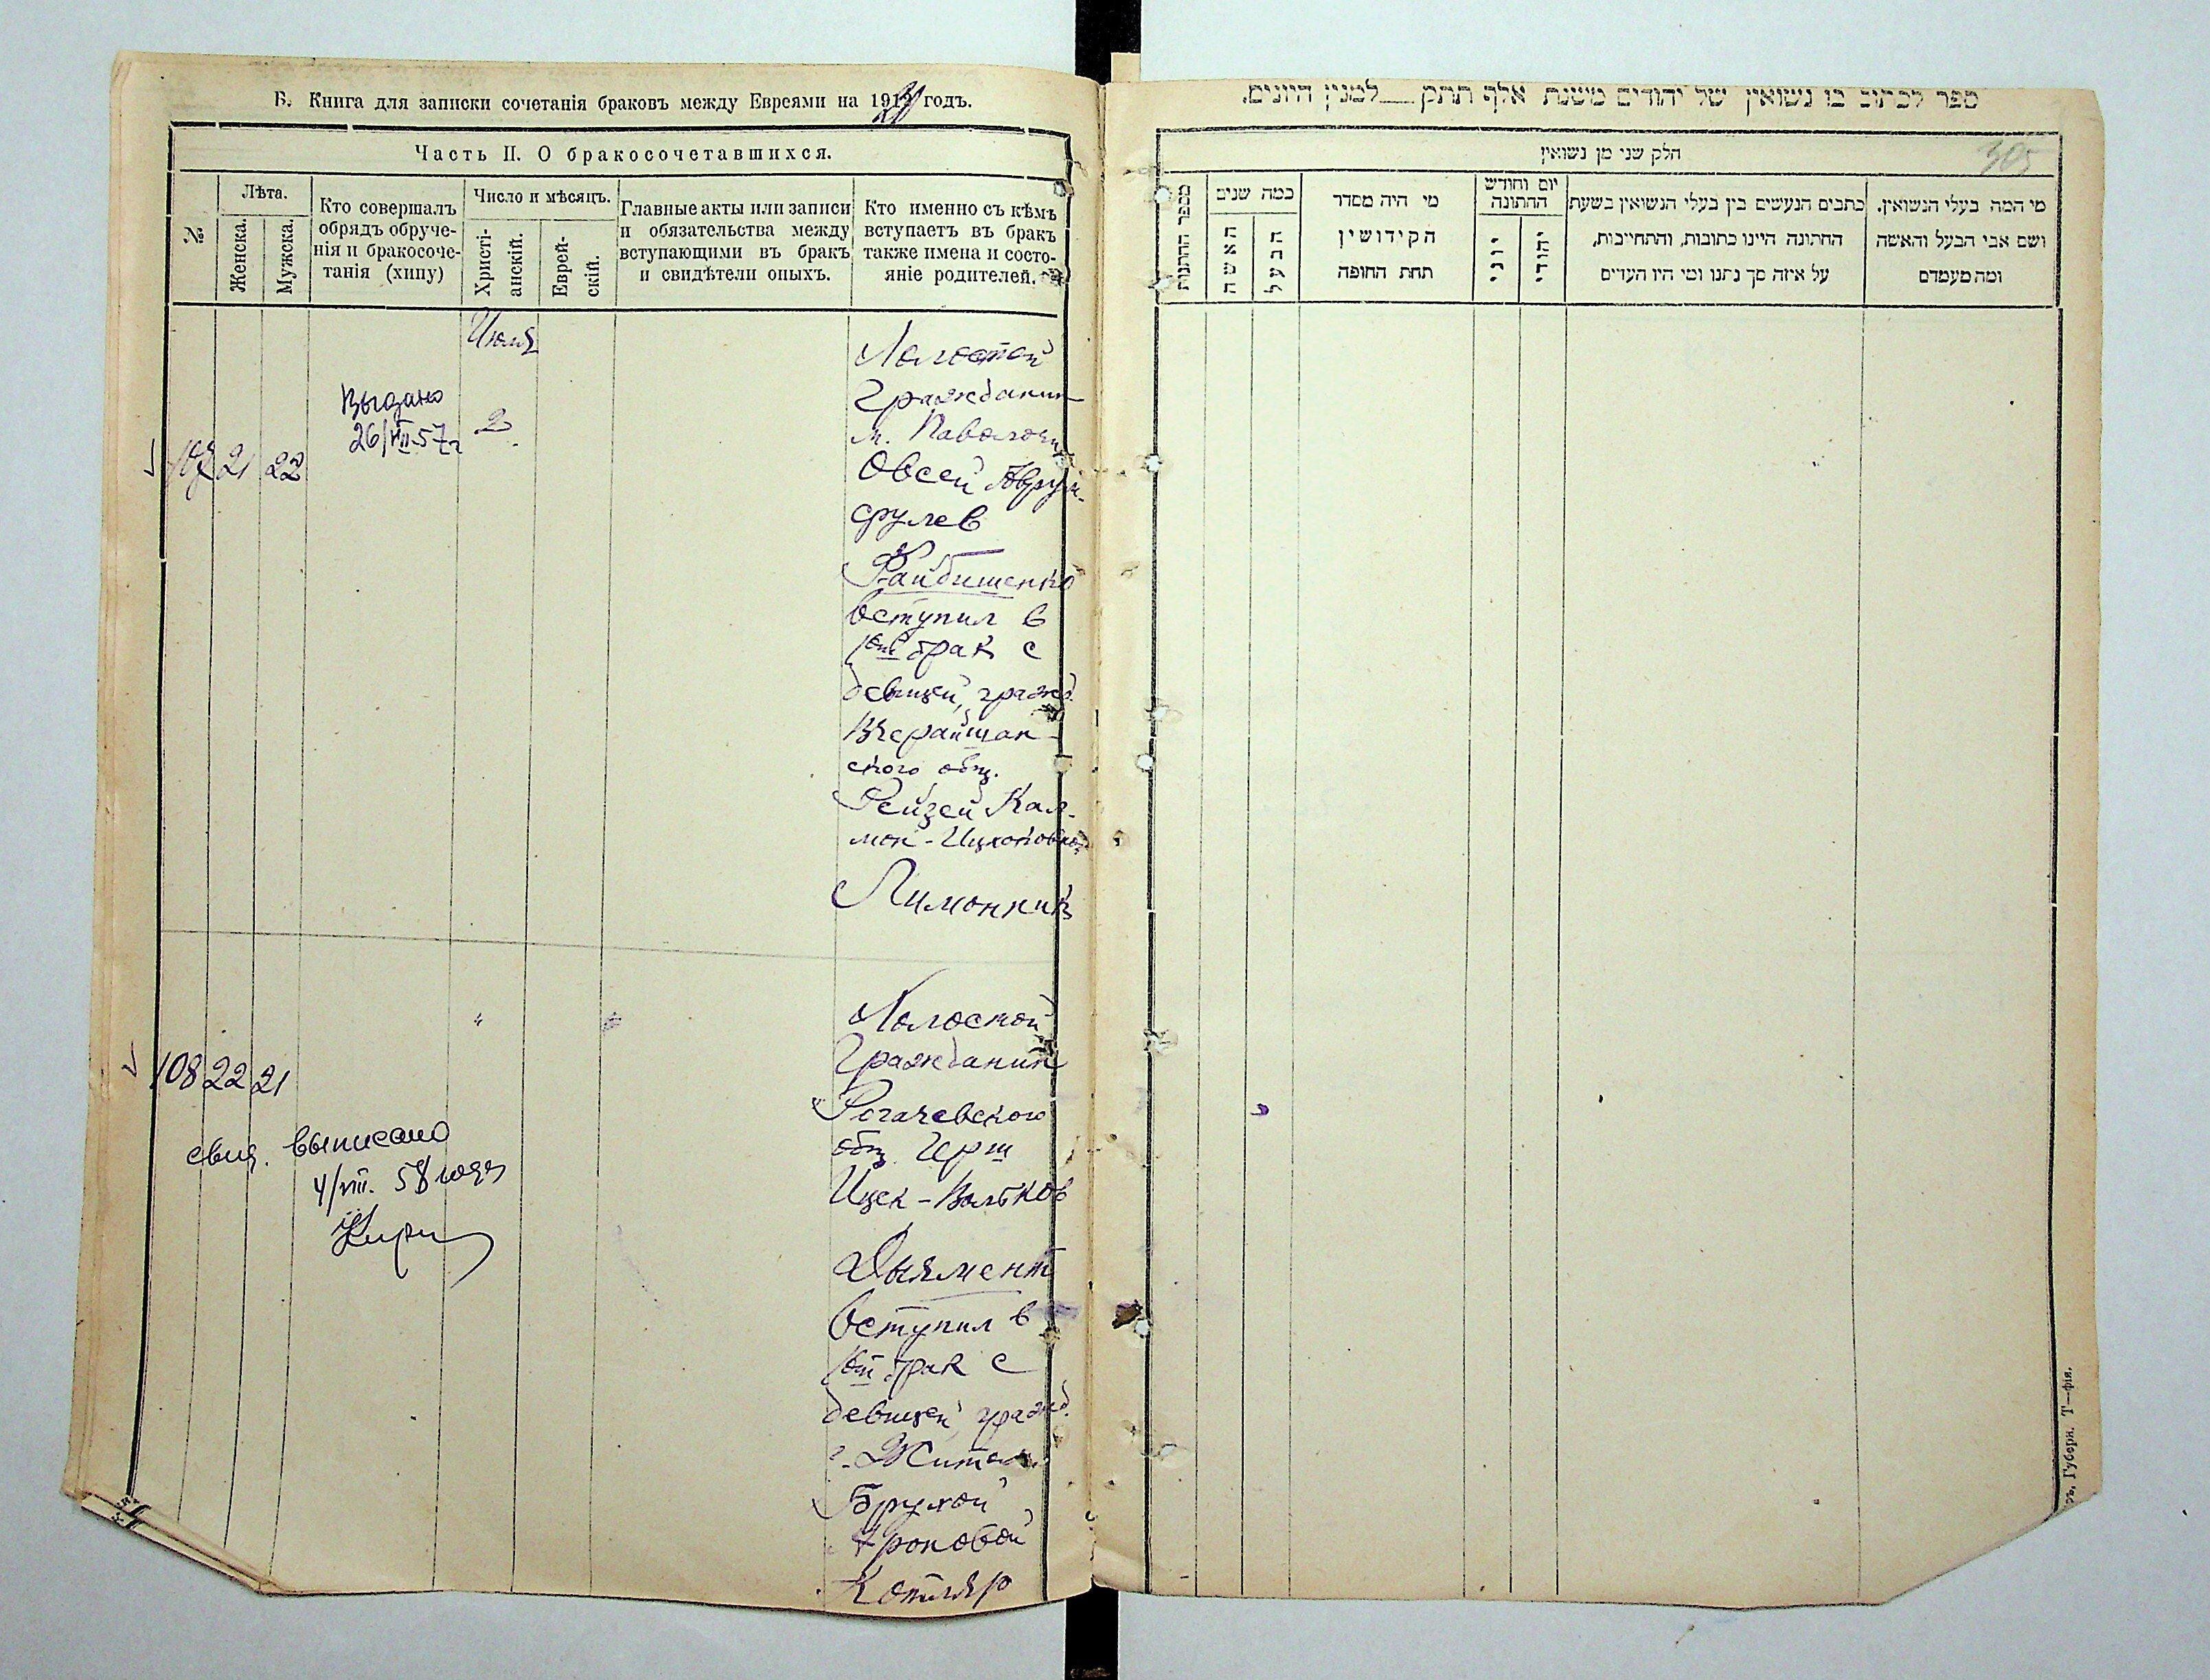 Б. Книга для записки сочетанія браковъ между Евреями на 1920 годъ.
Часть II. О бракосочетавшихся.
№
Лѣта.
Женска.
Мужска.
Кто совершалъ
обрядъ обруче-
нія и бракосоче-
танія (хипу)
Число и мѣсяцъ.
Христі-
анскій.
Еврей-
скій.
Главные акты или записи
и обязательства между
вступающими въ бракъ
и свидѣтели оныхъ.
Кто именно съ кѣмъ
вступаетъ въ бракъ
также имена и состо-
яніе родителей.
Июля
2
107 21 22
Выдано
26/VII-57г
Холостой
Гражданин
м. Паволочи
Овсей Аврум-
срулев
Файбишенко
вступил в
1ый брак с
девицей, гражд.
Вчерайшан-
ского общ.
Рейзей Кал-
мон-Ицковной
Лимонник
108 22 21
"
"
свид. выписано
4/VIII. 58 года
Холостой
Гражданин
Рогачевского
общ. Герш
Ицек-Вольков
Дыямент
вступил в
1ый брак с
девицей гражд.
г. Житом.
Брухой
Ароновой
Котляр
ספר לכתוב בו נשואין של יהודים משנת אלף תתק__למנין היונים.
305
חלק שני מן נשואין
מספר החתנות
כמה שנים
האשה
הבעל
מי היה מסדר
הקידושין
תחת החופה
יום וחודש
החתונה
יוני
יהודי
כתבים הנעשים בין בעלי הנשואין בשעת
החתונה היינו כתובות, והתחייבות,
על איזה סך נתנו ומי היו העדים
מי המה בעלי הנשואין.
ושם אבי הבעל והאשה
ומה מעמדם
ръ, Губерн. Т—фія.